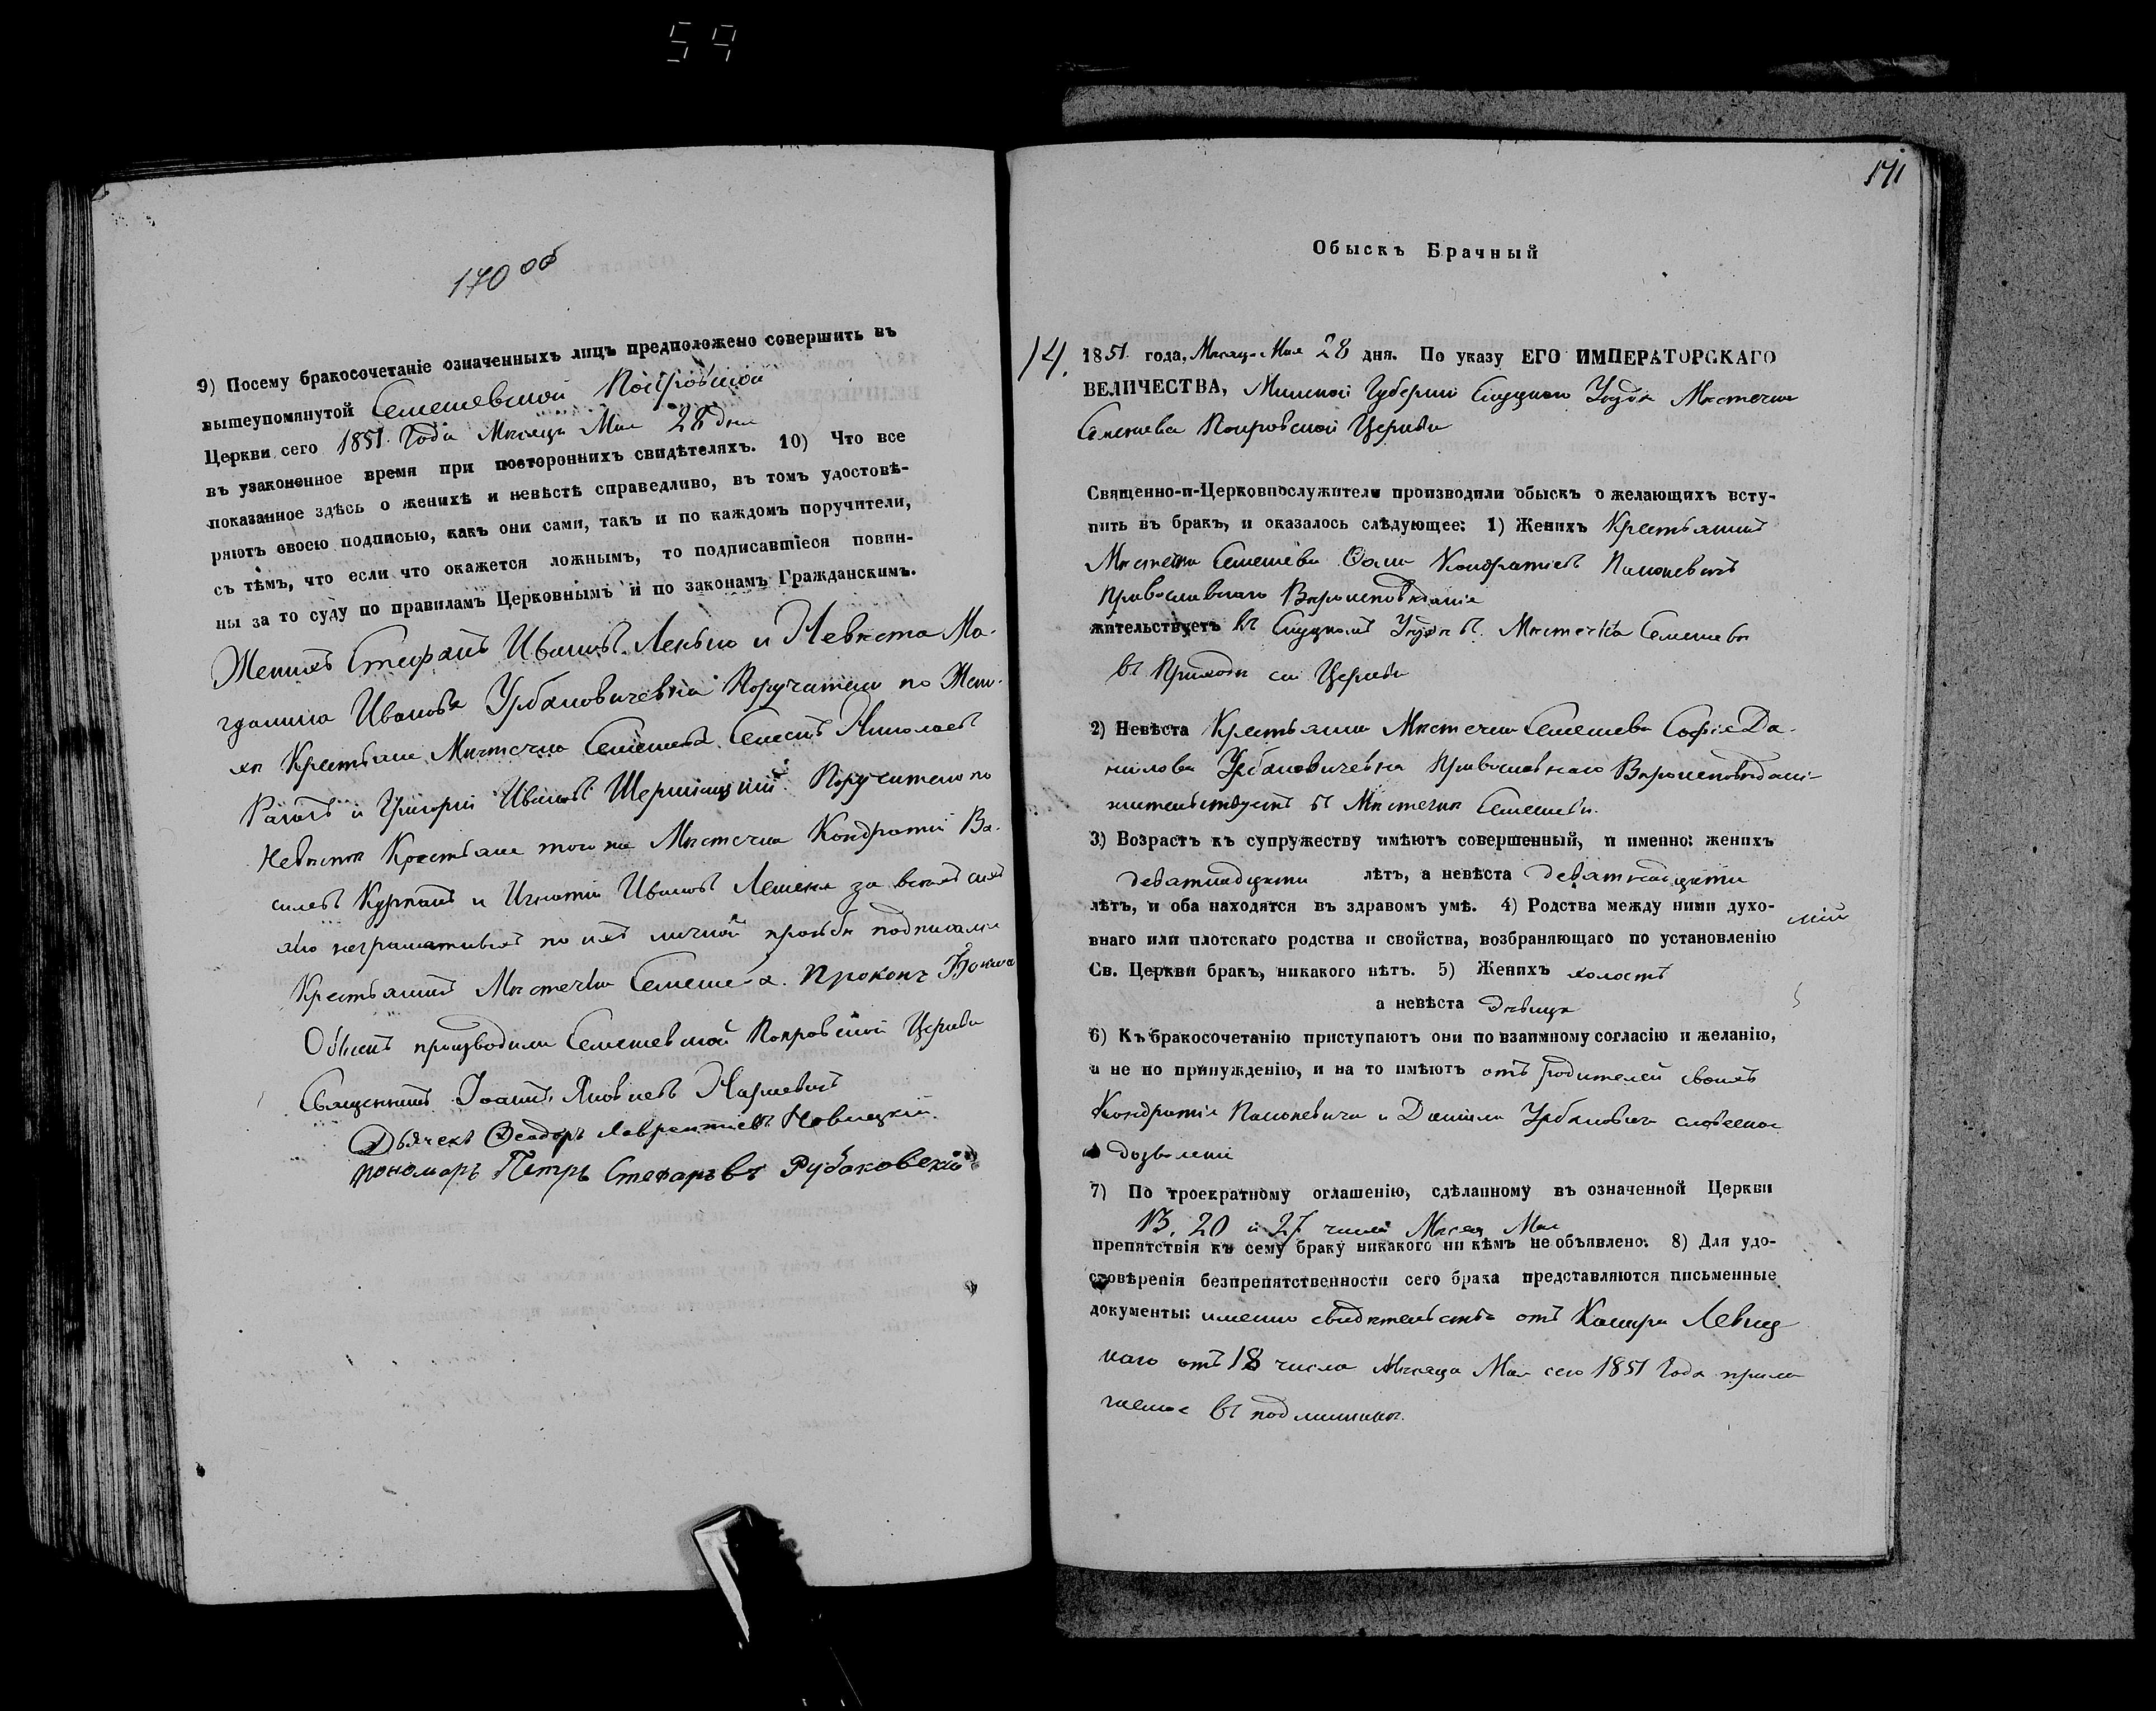 59
170 об
9) Посему бракосочетаніе означенныхъ лицъ предположено совершить въ
вышеупомянутой Семежевской Покровской
Церкви сего 1851 Года Месяца Мая 28 дня
въ узаконенное время при постороннихъ свидѣтеляхъ. 10) Что все
показанное здѣсь о женихѣ и невѣстѣ справедливо, въ томъ удостовѣ-
ряютъ своею подписью, какъ они сами, такъ и по каждомъ поручители,
съ тѣмъ, что если что окажется ложнымъ, то подписавшіеся повин-
ны за то суду по правиламъ Церковнымъ и по законамъ Гражданскимъ.
Женихъ Стефанъ Ивановъ и Невѣста Ма-
гдалина Иванова Урбановичевна Поручители по Жени-
хѣ Крестьяне Мѣстечка Семежева Семенъ Николаевъ
и Григорій Ивановъ Поручители по
Невѣстѣ Крестьяне того же Мѣстечка Кондратій Ва-
силевъ и Игнатій Ивановъ за всѣхъ сихъ
яко неграматныхъ по ихъ личной прозьбѣ подписался
Крестьянинъ Мѣстечка Семежева Прокопъ
Обыскъ производили Семежевской Покровской Церкви
Священникъ Іоаннъ Яковлевъ
Дьячекъ Ѳеодоръ Лаврентіевъ Новицкій
пономаръ Петръ Стефановъ Рубаковскій
171
Обыскъ Брачный
14.
1851 года, Месяца Мая 28 дня. По указу ЕГО ИМПЕРАТОРСКАГО
ВЕЛИЧЕСТВА, Минской Губерніи Слуцкаго Уезда Мѣстечка
Семежева Покровской Церкви
Священно-и-Церковнослужители производили обыскъ о желающихъ всту-
пить въ бракъ, и оказалось слѣдующее: 1) Женихъ Крестьянинъ
Мѣстечка Семежева Кондратіевъ
Православнаго Вѣроисповѣданія
жительствуетъ въ Слуцкомъ Уездѣ въ Мѣстечка Семежева
въ Приходѣ сей Церкви
2) Невѣста Крестьянка Мѣстечка Семежева Софія Да-
нилова Урбановичевна Православнаго Вѣроисповѣданія
жительствуетъ въ Мѣстечкѣ Семежевѣ.
3) Возрастъ къ супружеству имѣютъ совершенный, и именно: женихъ
девятнадцати лѣтъ, а невѣста девятнадцати
лѣтъ, и оба находятся въ здравомъ умѣ. 4) Родства между ними духо-
внаго или плотскаго родства и свойства, возбраняющаго по установленію
Св. Церкви бракъ, никакого нѣтъ. 5) Женихъ холостъ
а невѣста дѣвица
6) Къ бракосочетанію приступаютъ они по взаимному согласію и желанію,
а не по принужденію, и на то имѣютъ отъ родителей своихъ
Кондратія и Даніила Урбановича словесное
дозволеніе
7) По троекратному оглашенію, сдѣланному въ означенной Церкви
13, 20 и 27 числъ Месяца Мая
препятствія къ сему браку никакого ни кѣмъ не объявлено. 8) Для удо-
стовѣренія безпрепятственности сего брака представляются письменные
документы: именно свидѣтельство отъ Левиц
каго отъ 18 числа Месяца Мая сего 1851 Года прила
гаемое въ подлинникѣ.